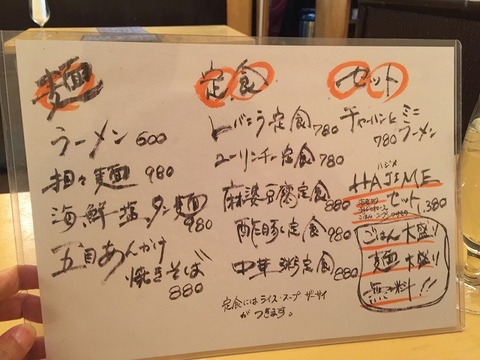 麺
ラーメン 600
担々麺 980
海鮮塩タン麺 980
五目あんかけ
焼きそば
880
定食
レバニラ定食 780
ユーリンチー定食 780
麻婆豆腐定食 880
酢豚定食 980
中華粥定食 880
定食にはライス・スープ ザーサイ
がつきます。
セット
チャーハンとミニ
ラーメン
780
ハジメ
HAJIME
セット 1,380
ごはん大盛り
麺大盛り
無料!!